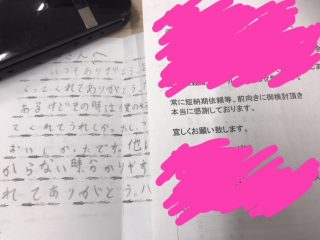 さんへ
いつもありがとう
くってくれてありがとう
あるけどその時は僕の
てくれてうれしか。たし、
おいしか。たです。他
からない時分かりやす
れてありがとう。ハ
常に短納期依頼等、前向きに御検討頂き
本当に感謝しております。
宜しくお願い致します。